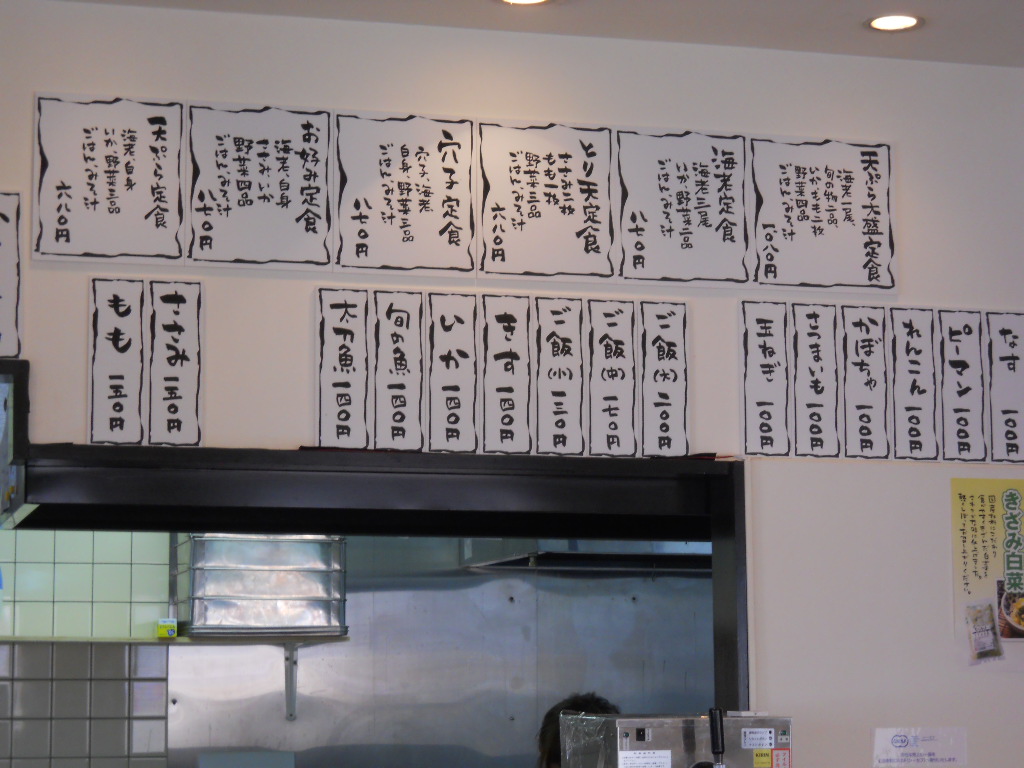 天ぷら大盛定食
海老二尾
旬の物二品
いか、もも一枚
野菜四品
ごはん、みそ汁
海老定食
海老三尾
いか、野菜三品
ごはん、みそ汁
八七〇円
とり天定食
ささみ二枚
もも一枚
野菜三品
ごはん、みそ汁
六八〇円
穴子定食
穴子、海老
白身、野菜三品
ごはん、みそ汁
八七〇円
お好み定食
海老、白身
ささみ、いか
野菜四品
ごはん、みそ汁
八七〇円
天ぷら定食
海老、白身
いか、野菜三品
ごはん、みそ汁
六八〇円
なす 一〇〇円
ピーマン 一〇〇円
れんこん 一〇〇円
かぼちゃ 一〇〇円
さつまいも 一〇〇円
玉ねぎ 一〇〇円
ご飯(大) 二〇〇円
ご飯(中) 一七〇円
ご飯(小) 一三〇円
きす 一四〇円
いか 一四〇円
旬の魚 一四〇円
太刀魚 一四〇円
ささみ 一五〇円
もも 一五〇円
きざみ白菜